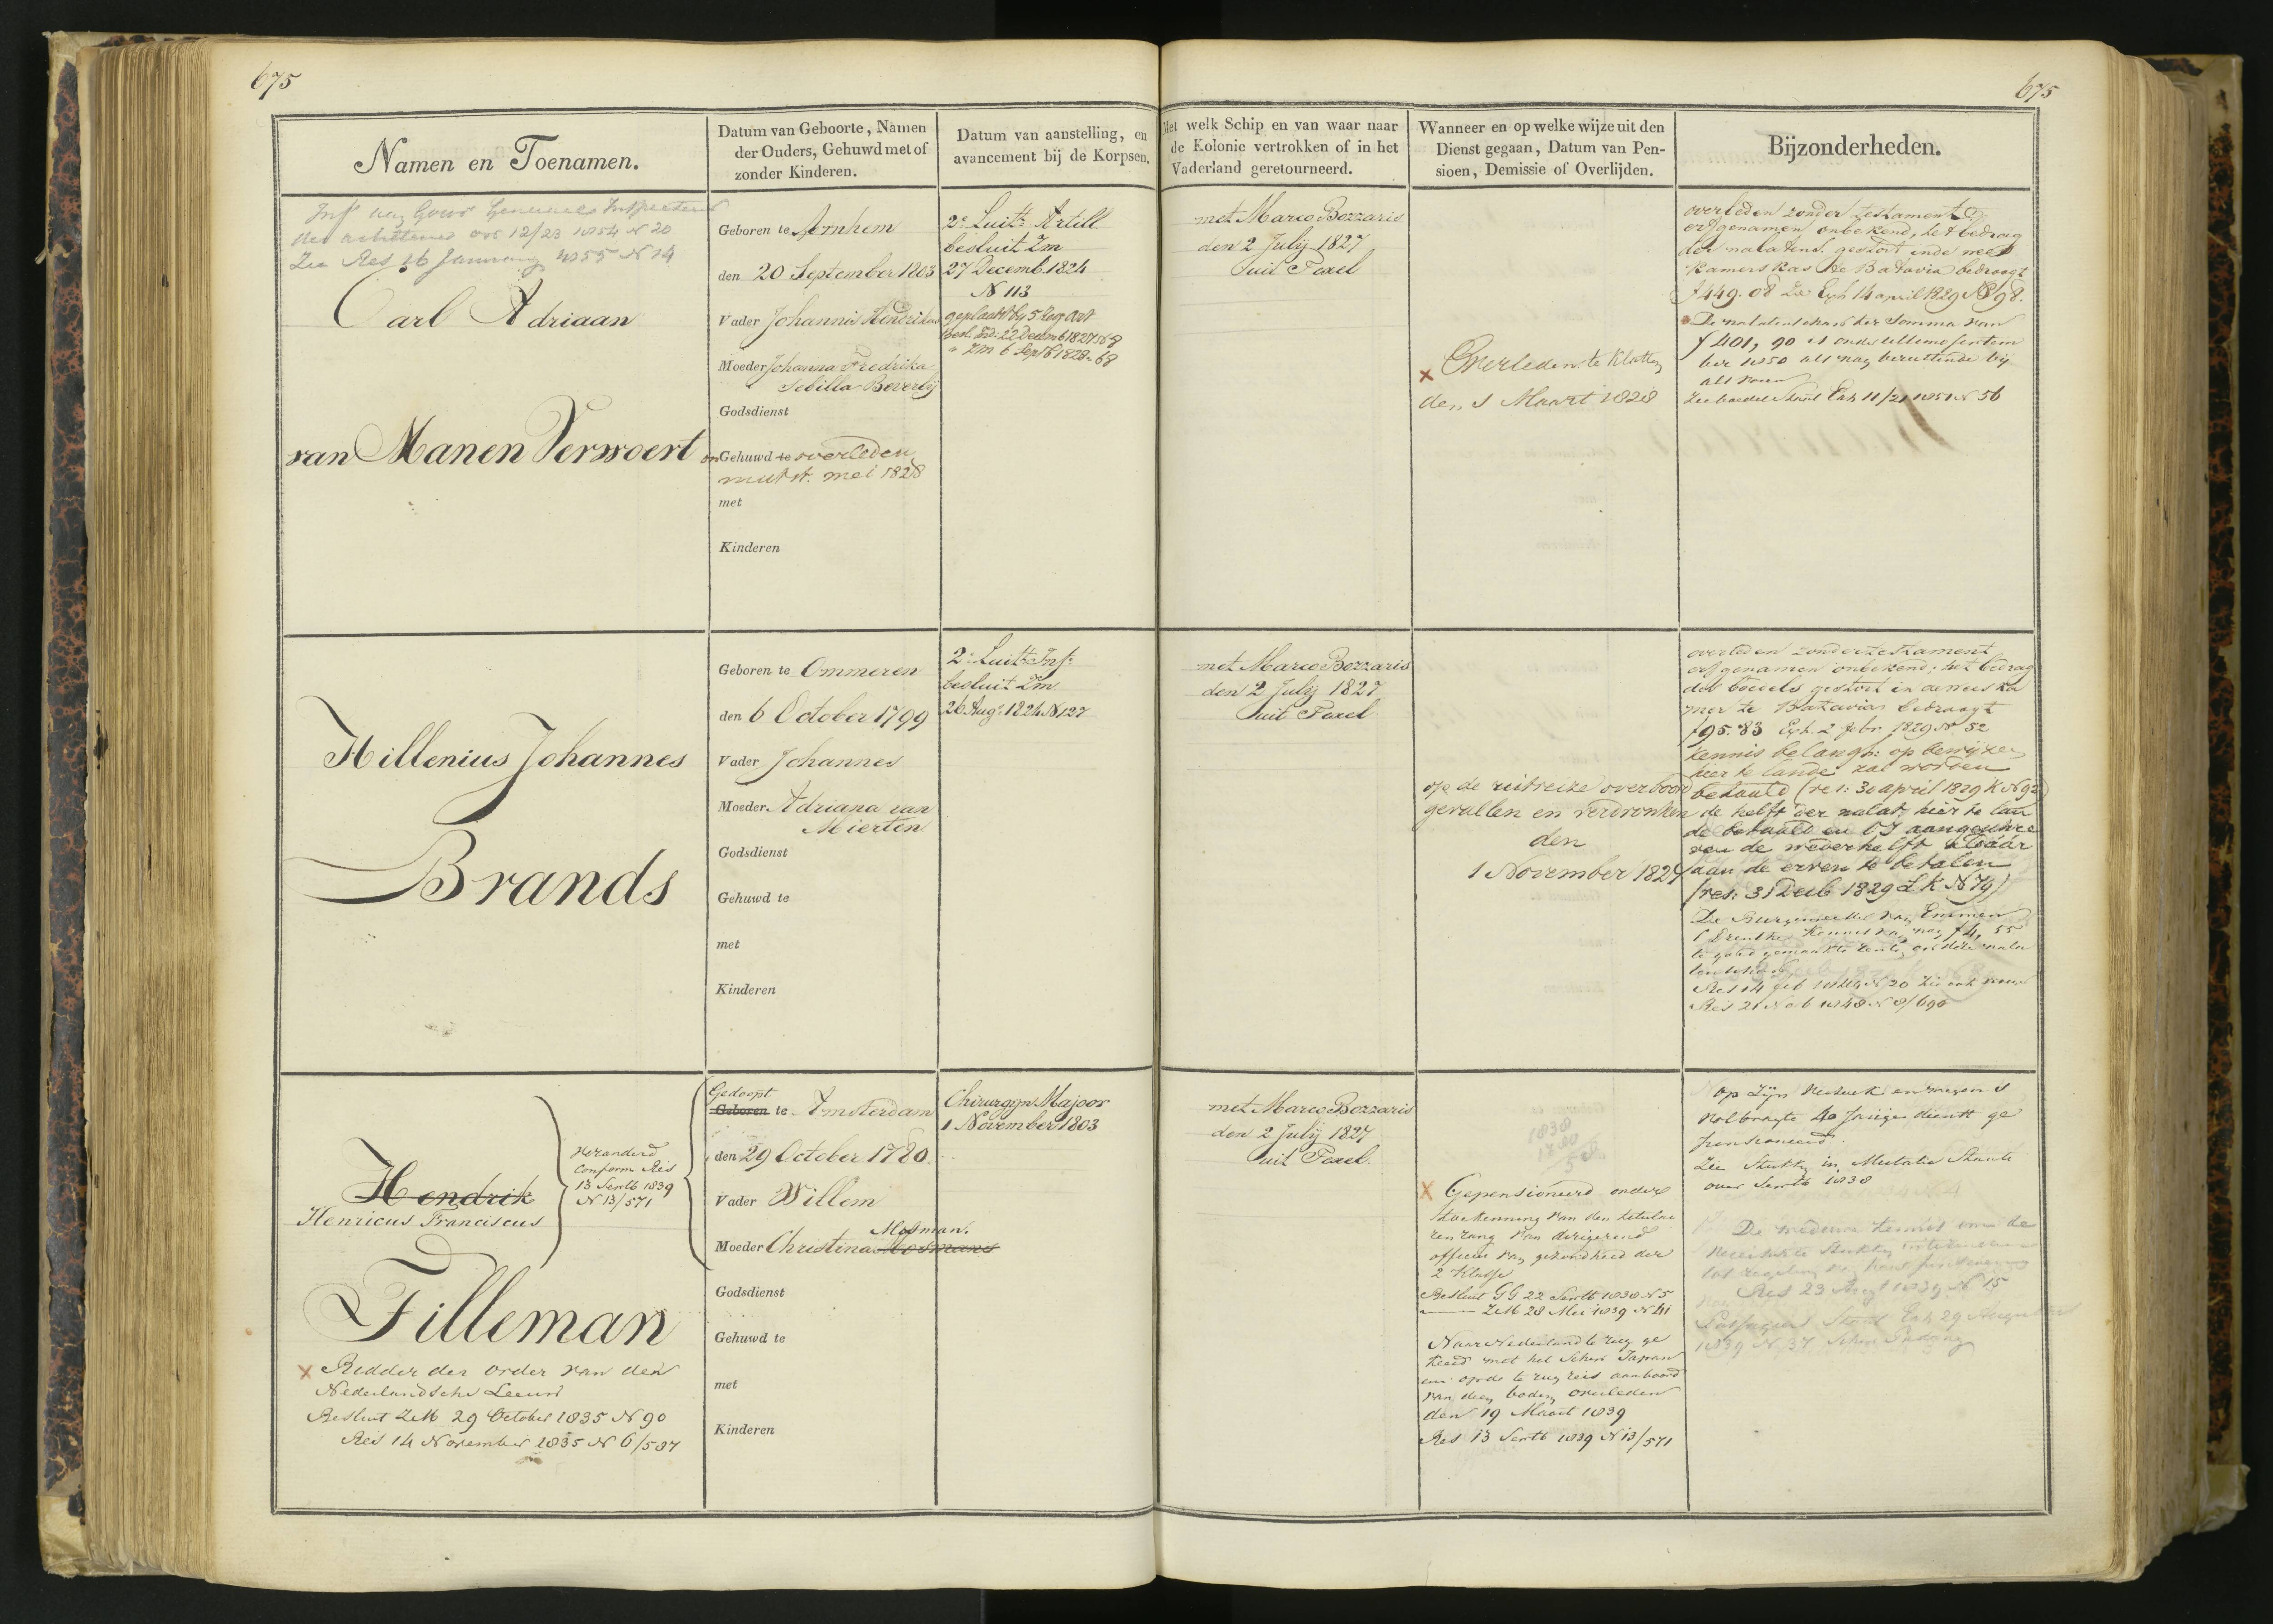 675
675
Namen en Toenamen.
Datum van Geboorte, Namen
der Ouders, Gehuwd met of
zonder Kinderen.
Datum van aanstelling, en
avancement bij de Korpsen.
Met welk Schip en van waar naar
de Kolonie vertrokken of in het
Vaderland geretourneerd.
Wanneer en op welke wijze uit den
Dienst gegaan, Datum van Pen-
sioen, Demissie of Overlijden.
Bijzonderheden.
Gouvr Generaals
der 12/23 1854 N 20
Zie Res 16 January 1855 N 14
Carl Adriaan
van Manen Verwoert
Geboren te Arnhem
den 20 September 1803
Vader Johannis Hendrikus
Moeder Johanna Fredrika
Sebilla Beverly
Godsdienst
Gehuwd te overleden
mei 1828
met
Kinderen
2e Luitt Artill
besluit Zm
27 Decemb. 1824
N 113
geplaatst by 5
besl. Ind: 22 Decemb 1827 N 8
" Zm 6 Sept 1828 68
met Marco Bozzaris
den 2 July 1827
uit Texel
x Overleden te Klatten
den 1 Maart 1828
overleden zonder testament
erfgenamen onbekend, het bedrag
der nalatens gestort inde wees
kamers kas te Batavia bedraagt
f 449.08 Zie Exh 14 april 1829 N 98.
De nalatenschap ter Somma van
f 401,90 is onder ultimo septem
ber 1850 als nog berustende bij
als voren
Zie boedel Staat Exh 11/21 1851 N 56
Hillenius Johannes
Brands
Geboren te Ommeren
den 6 October 1799
Vader Johannes
Moeder Adriana van
Mierten
Godsdienst
Gehuwd te
met
Kinderen
2e Luitt Inf:
besluit Zm
26 Augs 1824 N 127
met Marco Bozzaris
den 2 July 1827
uit Texel
op de uitreize overboord
gevallen en verdronken
den
1 November 1827
overleden zonder testament
erfgenamen onbekend: het bedrag
des boedels gestort in de weeska
mer te Batavia bedraagt
f 95.83 Exh. 2 febr. 1829 N. 52
kennis belangh: op bewijzen
hier te lande zal worden
betaald (res: 30 april 1829 K N 92)
de helft der nalat: hier te lan
de betaald en OI aangeschre
ven de wederhelft aldaar
aan de erven te betalen
(res: 31 Decb 1829 L K N 79)
De Burgemeester van Emmen
(Drenthe) Kennis van nog f 4,55
te goed gemaakte rente
Res 14 feb N 20 Zie ook
Res 21 Novb 1848 N 8/690
Hendrik
Henricus Franciscus
Veranderd
Conform Res
13 Septb 1839
N 13/571
Filleman
x Ridder der Order van den
Nederlandsche Leeuw
Besluit ZM 29 October 1835 N 90
Res 14 November 1835 N 6/587
Gedoopt
Geboren te Amsterdam
den 29 October 1780
Vader Willem
Mosman.
Moeder Christina Mosmans
Godsdienst
Gehuwd te
met
Kinderen
Chirurgyn Majoor
1 November 1803
met Marco Bozzaris
den 2 July 1827
uit Texel.
1838
1780
58
x Gepensioneerd onder
toekenning van den titulai
ren rang van dirigerend
officier van gezondheid der
2 Klasse
Besluit GG 22 Septb 1838 N 5
ZM 28 Mei 1839 N 41
Naar Nederland te rug ge
keerd met het Schip Japan
en op de te rug reis aan boord
van dien bodem overleden
den 19 Maart 1839
Res 13 Septb 1839 N 13/571
op Zijn Verzoek en wegens
volbragte 40 Jarige dienst ge
pensioneerd.
Zie Stukken in Mutatie Staat
over Septb 1838
Res 23 Augt 1839 N 15
Passagiers Staat Exh 29 Augustus
1839 N 37 Schip